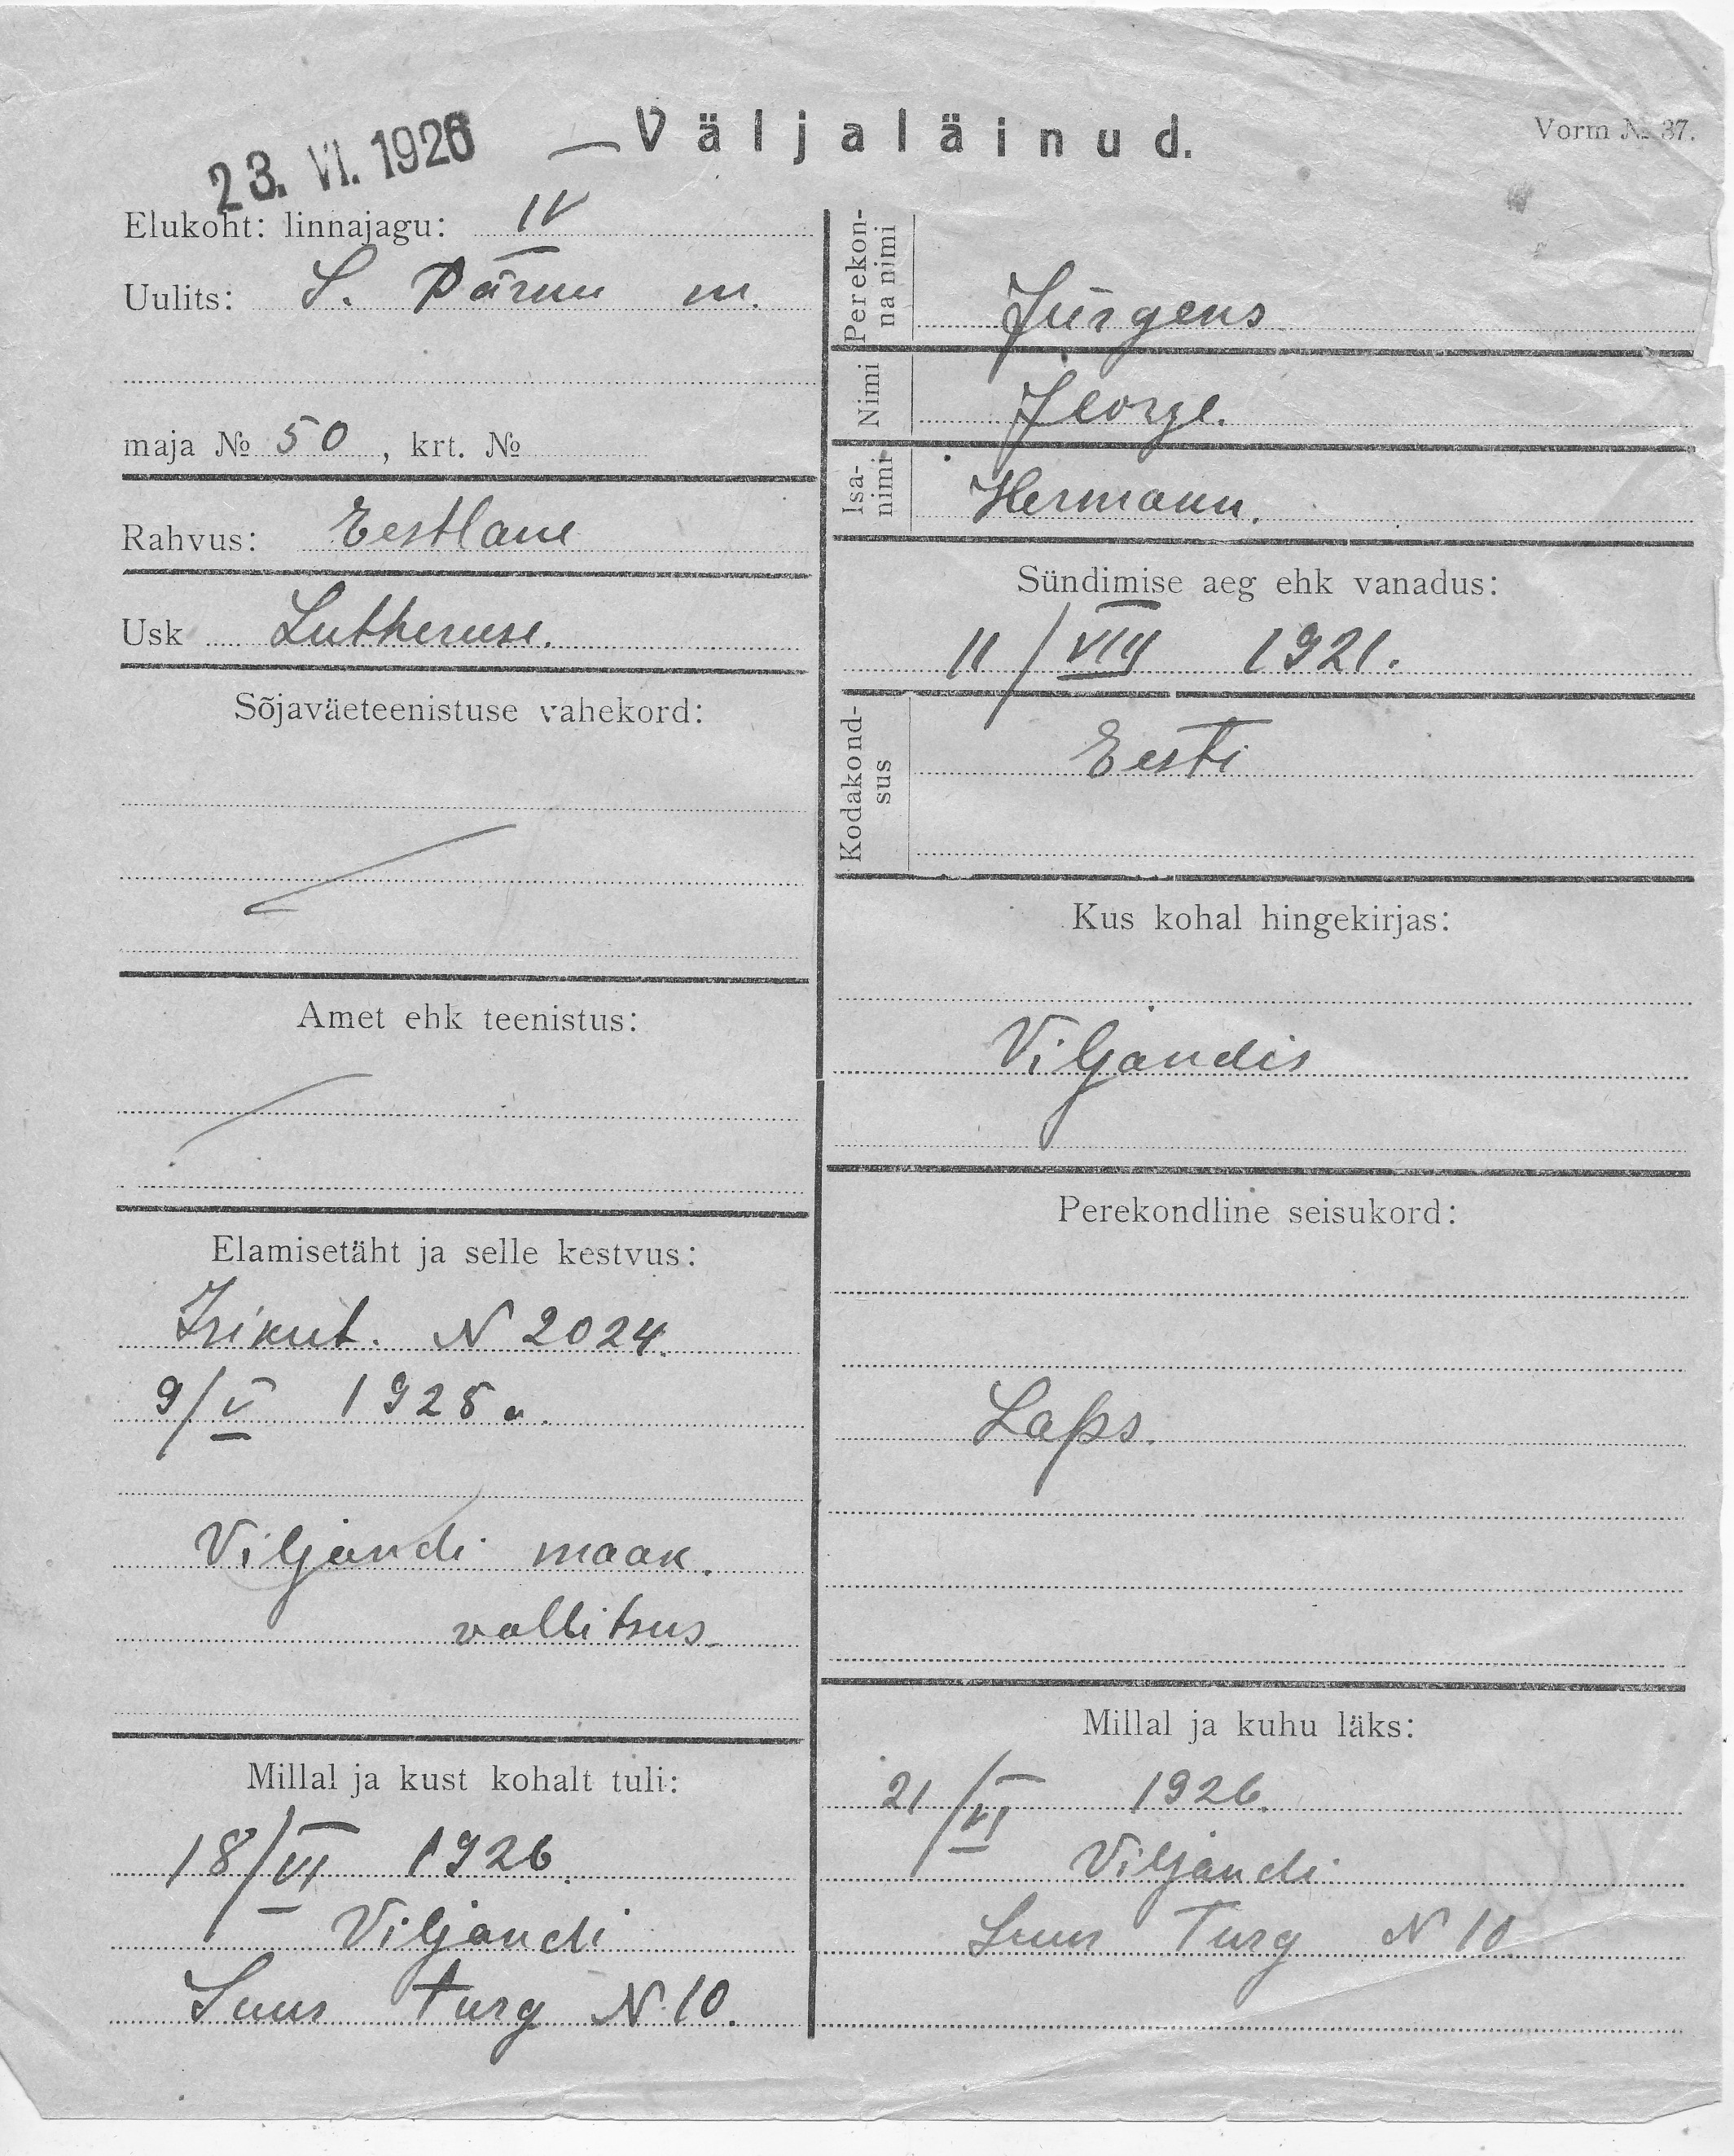 23. VI. 1926
Väljaläinud.
Vorm № 37.
Elukoht: linnajagu: IV
Uulits: S. Pärnu m.
maja № 50, krt. №
Rahvus: Eestlane
Usk Lutheruse.
Sõjaväeteenistuse vahekord:
Amet ehk teenistus:
Elamisetäht ja selle kestvus:
Isikut. N 2024.
9/V 1925 a.
Viljandi maak.
vallitsus.
Millal ja kust kohalt tuli:
18/VI 1926.
Viljandi
Suur turg N 10.
Perekon-
na nimi
Jürgens
Nimi
George.
Isa-
nimi
Hermann.
Sündimise aeg ehk vanadus:
11/VIII 1921.
Kodakond-
sus
Eesti
Kus kohal hingekirjas:
Viljandis
Perekondline seisukord:
Laps.
Millal ja kuhu läks:
21/VI 1926.
Viljandi
Suur Turg N 10